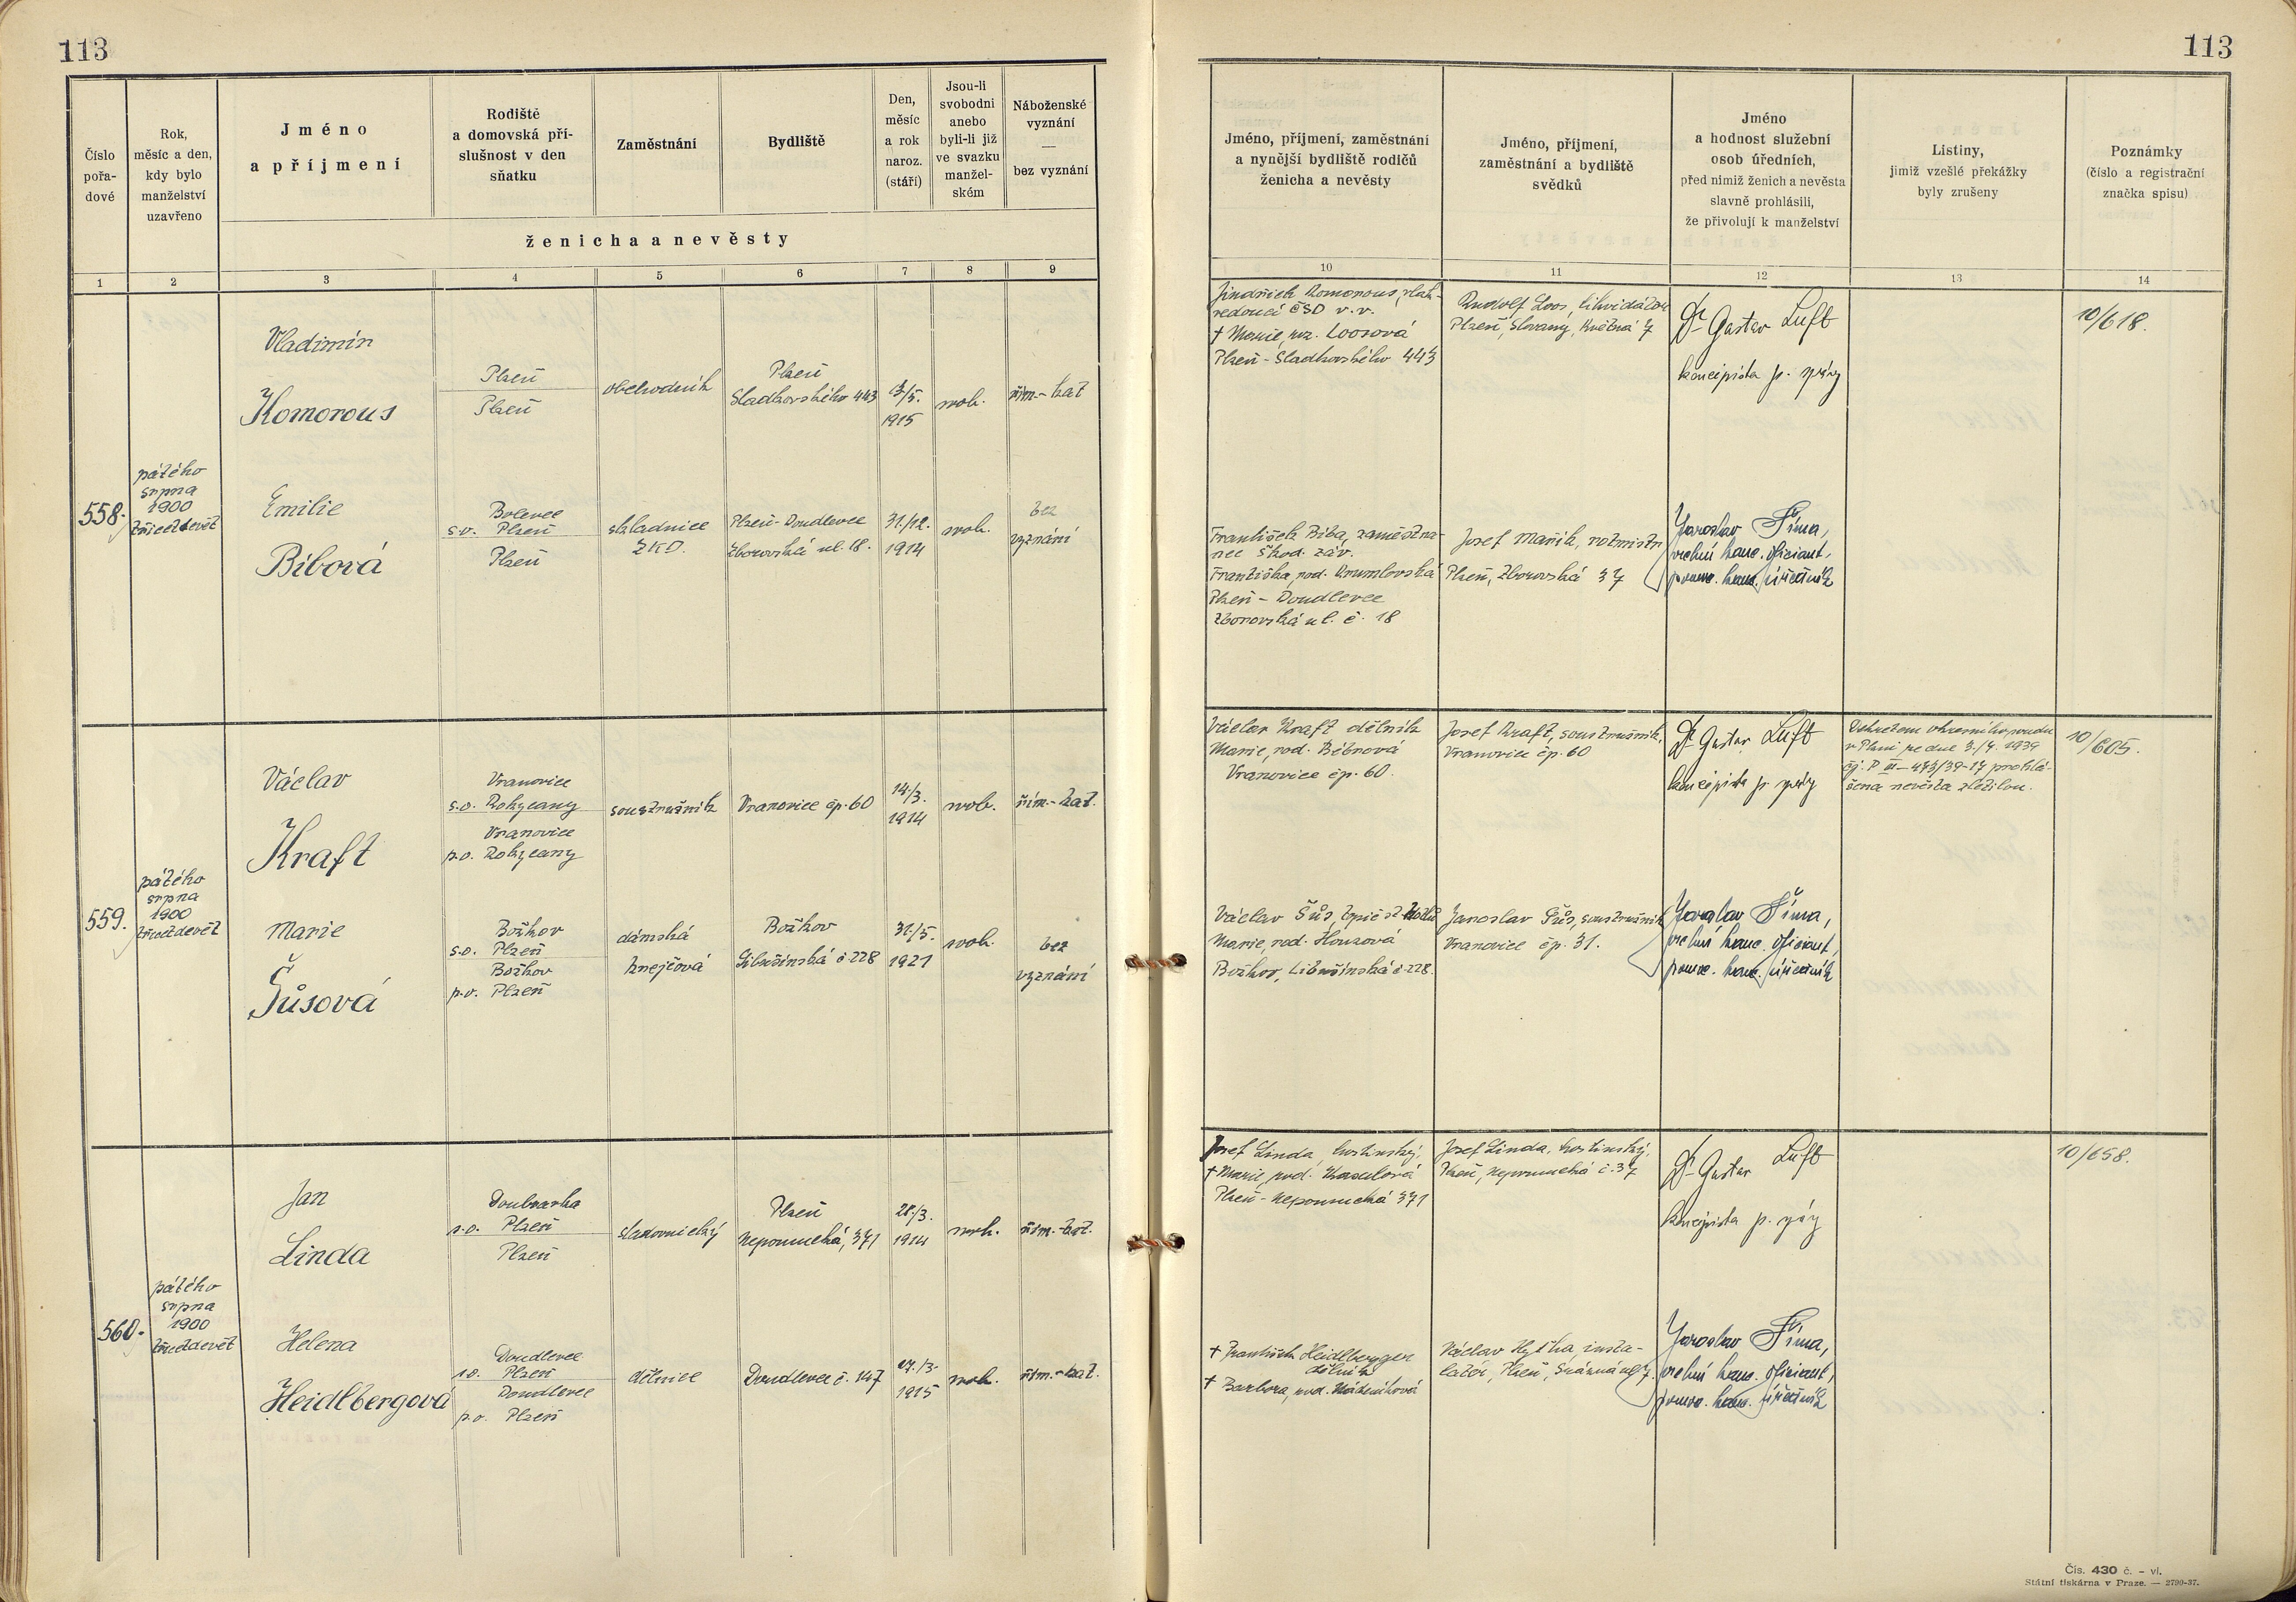 113
113
Číslo pořadové
Rok, měsíc a den, kdy bylo manželství uzavřeno
Jméno a příjmení
Rodiště a domovská příslušnost v den sňatku
Zaměstnání
Bydliště
Den, měsíc a rok naroz. (stáří)
Jsou-li svobodni anebo byli-li již ve svazku manželském
Náboženské vyznání — bez vyznání
ženicha a nevěsty
1 2 3 4 5 6 7 8 9
Jméno, příjmení, zaměstnání a nynější bydliště rodičů ženicha a nevěsty
Jméno, příjmení, zaměstnání a bydliště svědků
Jméno a hodnost služební osob úředních, před nimiž ženich a nevěsta slavně prohlásili, že přivolují k manželství
Listiny, jimiž vzešlé překážky byly zrušeny
Poznámky (číslo a registrační značka spisu)
10 11 12 13 14
558.
pátého
srpna
1900
třicetdevět
Vladimír
Komorous
Plzeň
Plzeň
obchodník
Plzeň
Sladkovského 443
/5.
1915
svob.
řím.-kat
Emilie
Bíbová
Bolevec
s.o. Plzeň
Plzeň
skladnice
ŽKD.
Plzeň-Doudlevce
Zborovská ul. 18.
31./12.
1914
svob.
bez
vyznání
Jindřich Komorous,
ČSD v.v.
† Marie, roz. Loosová
Plzeň - Sladkovského 443
Rudolf Loos, likvidátor
Plzeň, Slovany, Květná 7
Dr Gustav Luft
koncipista p. správy
10/618.
František Bíba, zaměstna-
nec Škod. záv.
Františka, rod. Krumlovská
Plzeň - Doudlevce
Zborovská ul. č. 18
Josef Mařík, rotmistr
Plzeň, Zborovská 37
Jaroslav Šíma,
vrchní kanc. oficiant,
pomoc. kanc. úředník
559.
pátého
srpna
1900
třicetdevět
Václav
Kraft
Vranovice
s.o. Rokycany
Vranovice
p.o. Rokycany
soustružník
Vranovice čp. 60
14/3.
1914
svob.
řím.-kat.
Marie
Šůsová
Božkov
s.o. Plzeň
Božkov
p.o. Plzeň
dámská
krejčová
Božkov
Libušinská č. 228
31/5.
1921
svob.
bez
vyznání
Václav Kraft dělník
Marie, rod.
Vranovice čp. 60.
Josef Kraft, soustružník,
Vranovice čp. 60
Dr Gustav Luft
koncipista p. správy
Dekretem okresního soudu
v Plzni ze dne 3./7. 1939
čj. P III-473/39-17 prohlá-
šena nevěsta zletilou.
10/605.
Václav Šůs, topič st. kotlů
Marie, rod. Houzová
Božkov, Libušinská č. 228.
Jaroslav Šůs, soustružník
Vranovice čp. 31.
Jaroslav Šíma,
vrchní kanc. oficiant,
pomoc. kanc. úředník
560.
pátého
srpna
1900
třicetdevět
Jan
Linda
Doubravka
s.o. Plzeň
Plzeň
sladovnický
Plzeň
Nepomucká, 371
28/3.
1914
svob.
řím.-kat.
Helena
Heidlbergová
Doudlevce
s.o. Plzeň
Doudlevce
p.o. Plzeň
dělnice
Doudlevce č. 147
27./3.
1915
svob.
řím.-kat.
Josef Linda, hostinský,
† Marie, rod.
Plzeň - Nepomucká 371
Josef Linda, hostinský,
Plzeň, Nepomucká č. 37
Dr Gustav Luft
koncipista p. správy
10/658.
† František Heidlberger
dělník
† Barbora, rod.
Václav Hytha, insta-
latér, Plzeň,
Jaroslav Šíma,
vrchní kanc. oficiant,
pomoc. kanc. úředník
Čís. 430 č. - vl.
Státní tiskárna v Praze. — 2799-37.